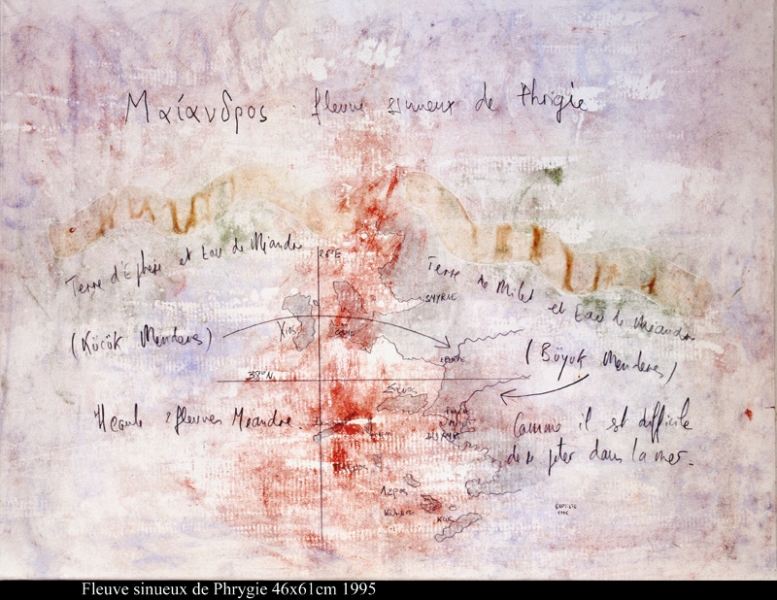 Μαίανδρος fleuve sinueux de Phrigie
Terre d'Ephèse et Eau de Méandre
26°E
Terre de Milet et Eau de Méandre
SMYRNE
(Küçük Menderes)
Xios
(Büyük Menderes)
38°N
Il coule 2 fleuves Méandre.
Comme il est difficile
de se jeter dans la mer.
Kos
Fleuve sinueux de Phrygie 46x61cm 1995